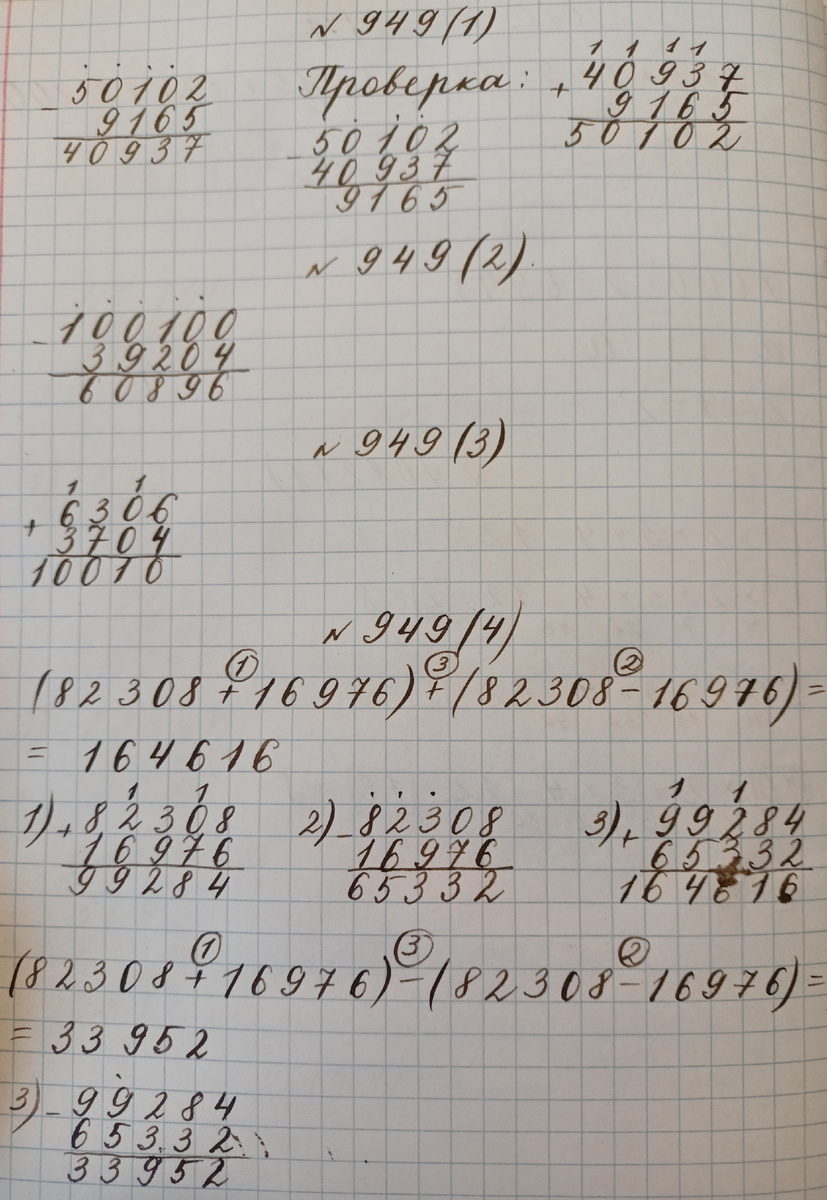 № 949(1)
50102
- 9165
40937
Проверка:
50102
- 40937
9165
1 1 1 1
+ 40937
9165
50102
№ 949(2).
- 100100
39204
60896
№ 949(3)
1 1
+ 6306
3704
10010
№ 949(4)
1 3 2
(82308+16976)+(82308-16976)=
= 164616
1 1
1) + 82308
16976
99284
2) - 82308
16976
65332
1 1
3) + 99284
65332
164616
1 3 2
(82308+16976)-(82308-16976)=
= 33952
3) - 99284
65332
33952